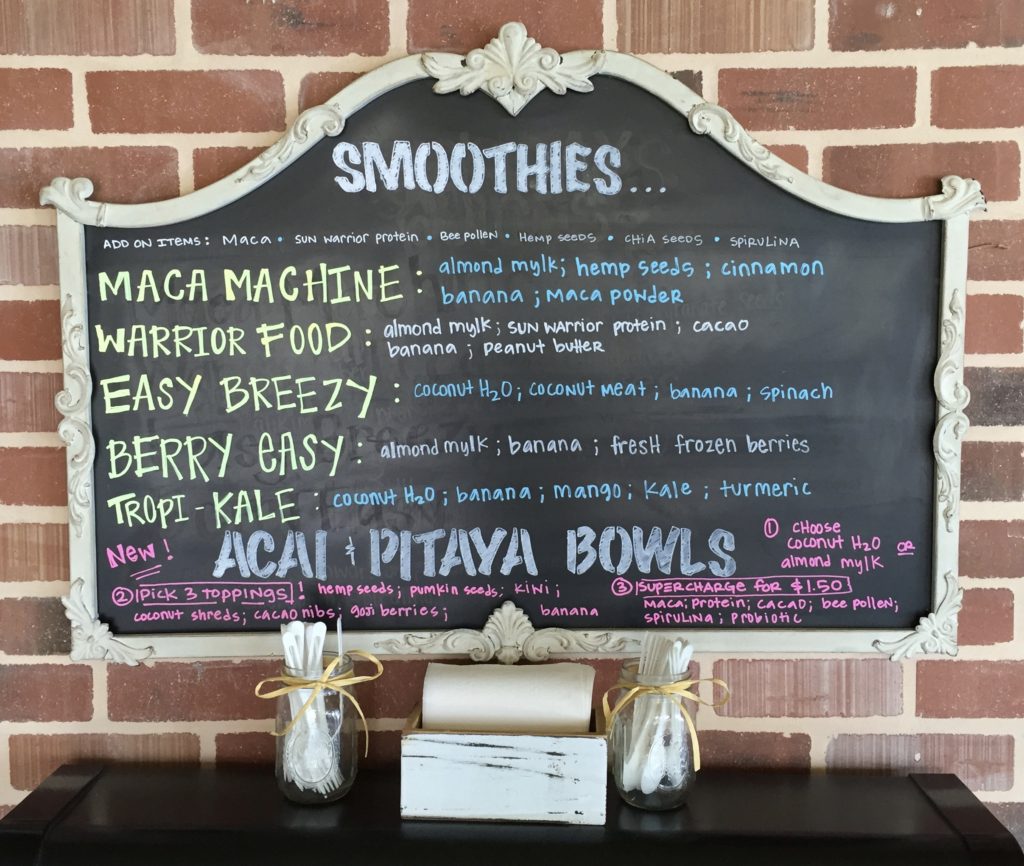 SMOOTHIES...
ADD ON ITEMS: Maca • SUN WARRIOR PROTEIN • BEE POLLEN • HEMP SEEDS • CHIA SEEDS • SPIRULINA
MACA MACHINE: almond mylk; hemp seeds; cinnamon
banana; MACA POWDER
WARRIOR FOOD: almond mylk; SUN WARRIOR protein; cacao
banana; peanut butter
EASY BREEZY: coconut H₂O; coconut meat; banana; spinach
BERRY EASY: almond mylk; banana; fresh frozen berries
TROPI-KALE: coconut H₂O; banana; mango; kale; turmeric
New! ACAI & PITAYA BOWLS
① CHOOSE
coconut H₂O OR
almond mylk
② PICK 3 TOPPINGS! hemp seeds; pumpkin seeds; kiwi;
coconut shreds; cacao nibs; goji berries; banana
③ SUPERCHARGE for $1.50
maca; protein; cacao; bee pollen;
spirulina; probiotic